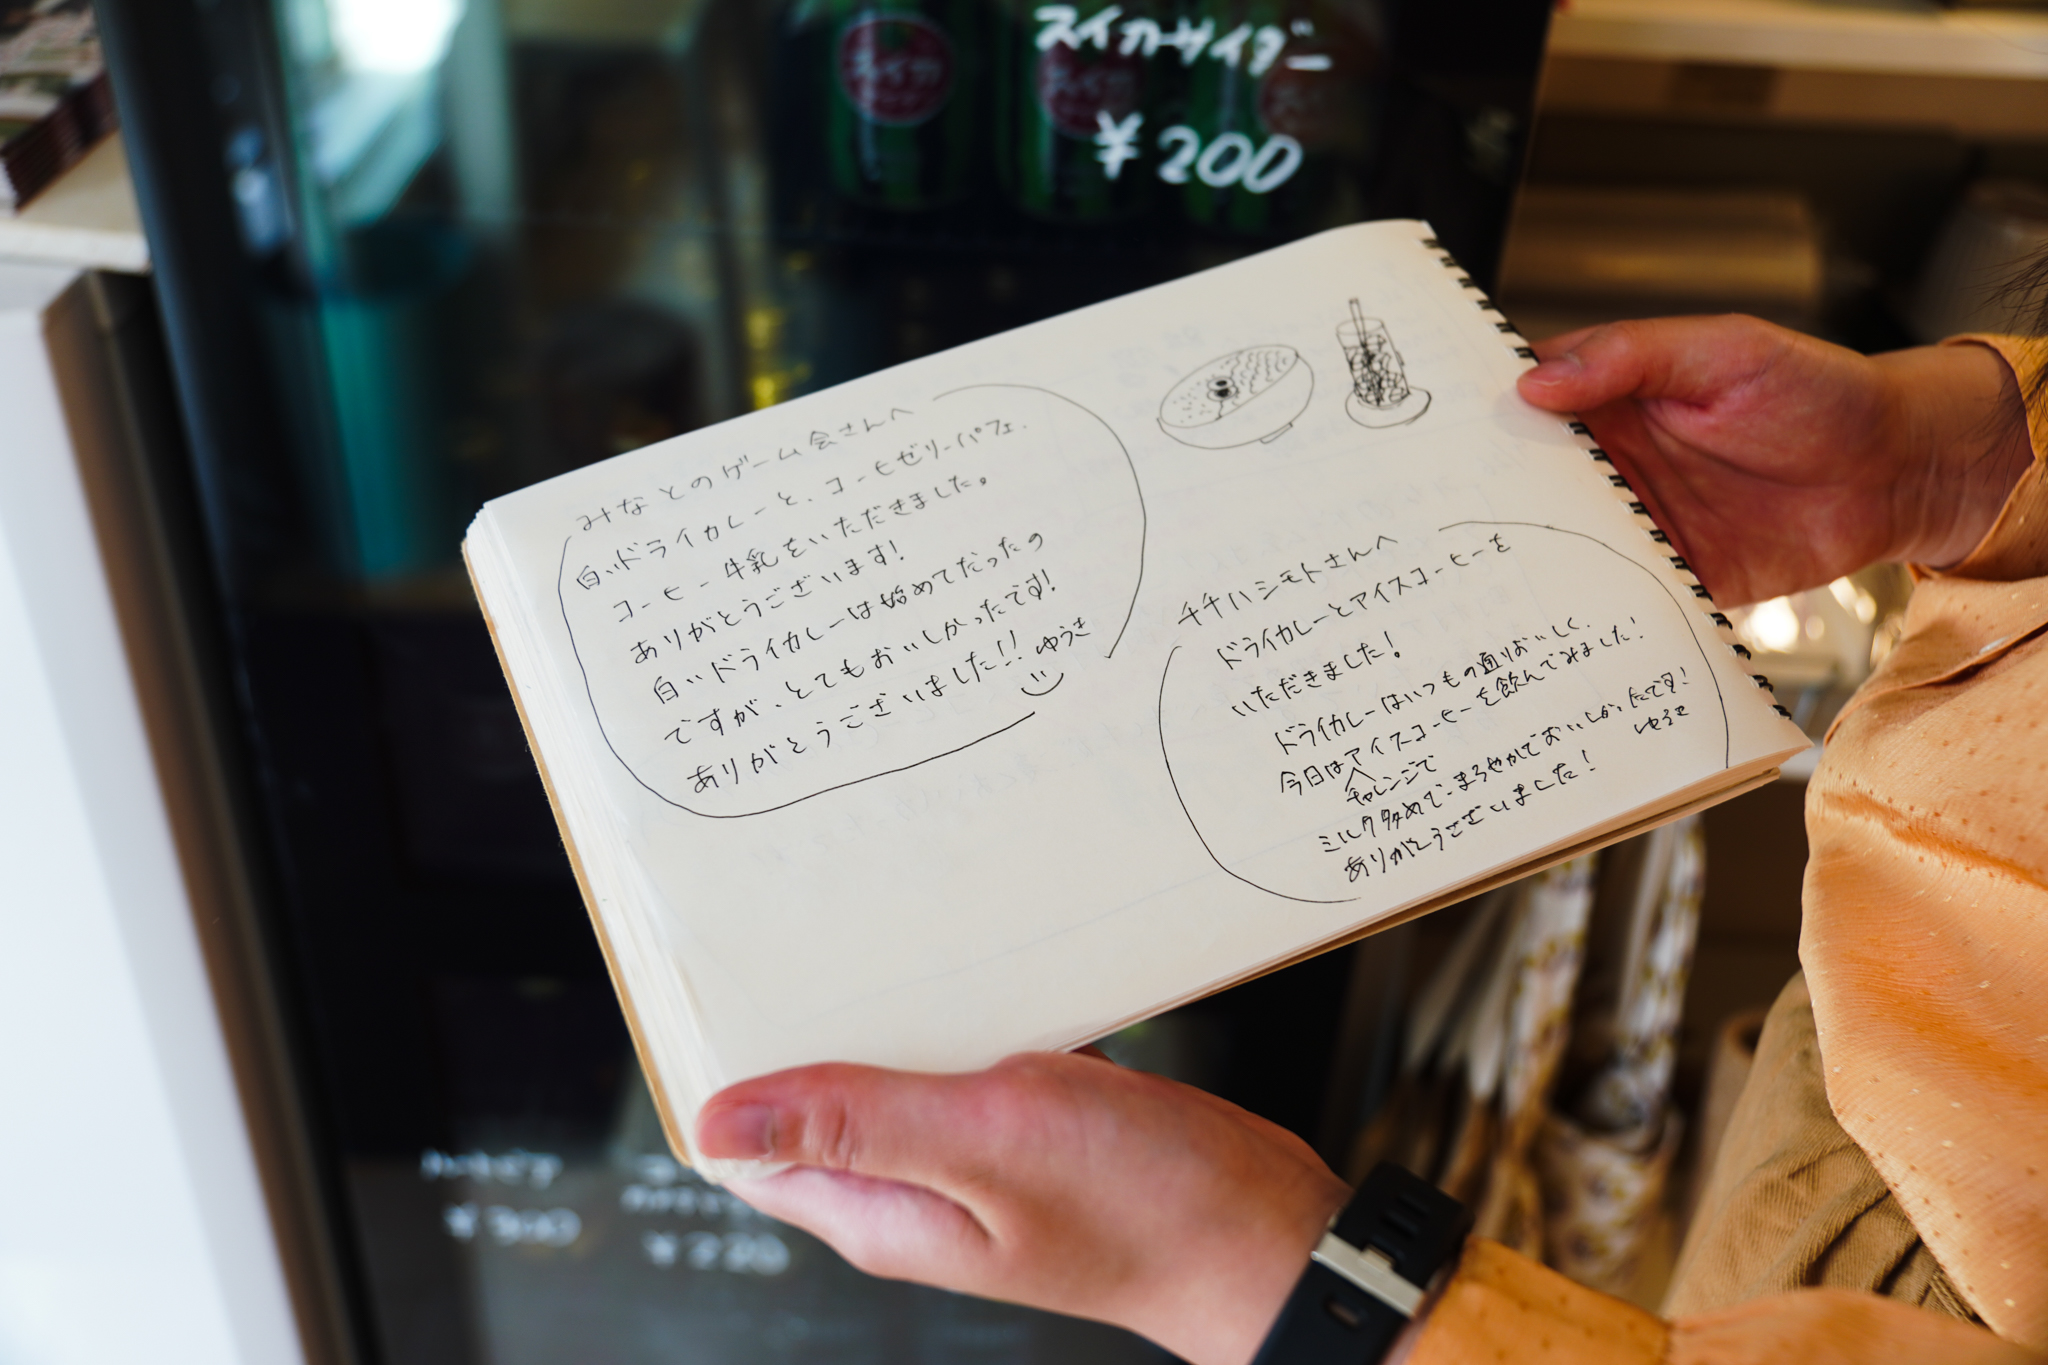 スイカサイダー
¥200
スイカ
みなとのゲーム会さんへ
白いドライカレーと、コーヒーゼリーパフェ、
コーヒー牛乳をいただきました。
ありがとうございます!
白いドライカレーは始めてだったの
ですが、とてもおいしかったです!
ありがとうございました!! ゆうき
チチハシモトさんへ
ドライカレーとアイスコーヒーを
いただきました!
ドライカレーはいつもの通りおいしく、
今日はアイスコーヒーを飲んでみました!
チャレンジで
ミルク多めで、まろやかでおいしかったです!
ありがとうございました!
ゆうき
¥300
¥220